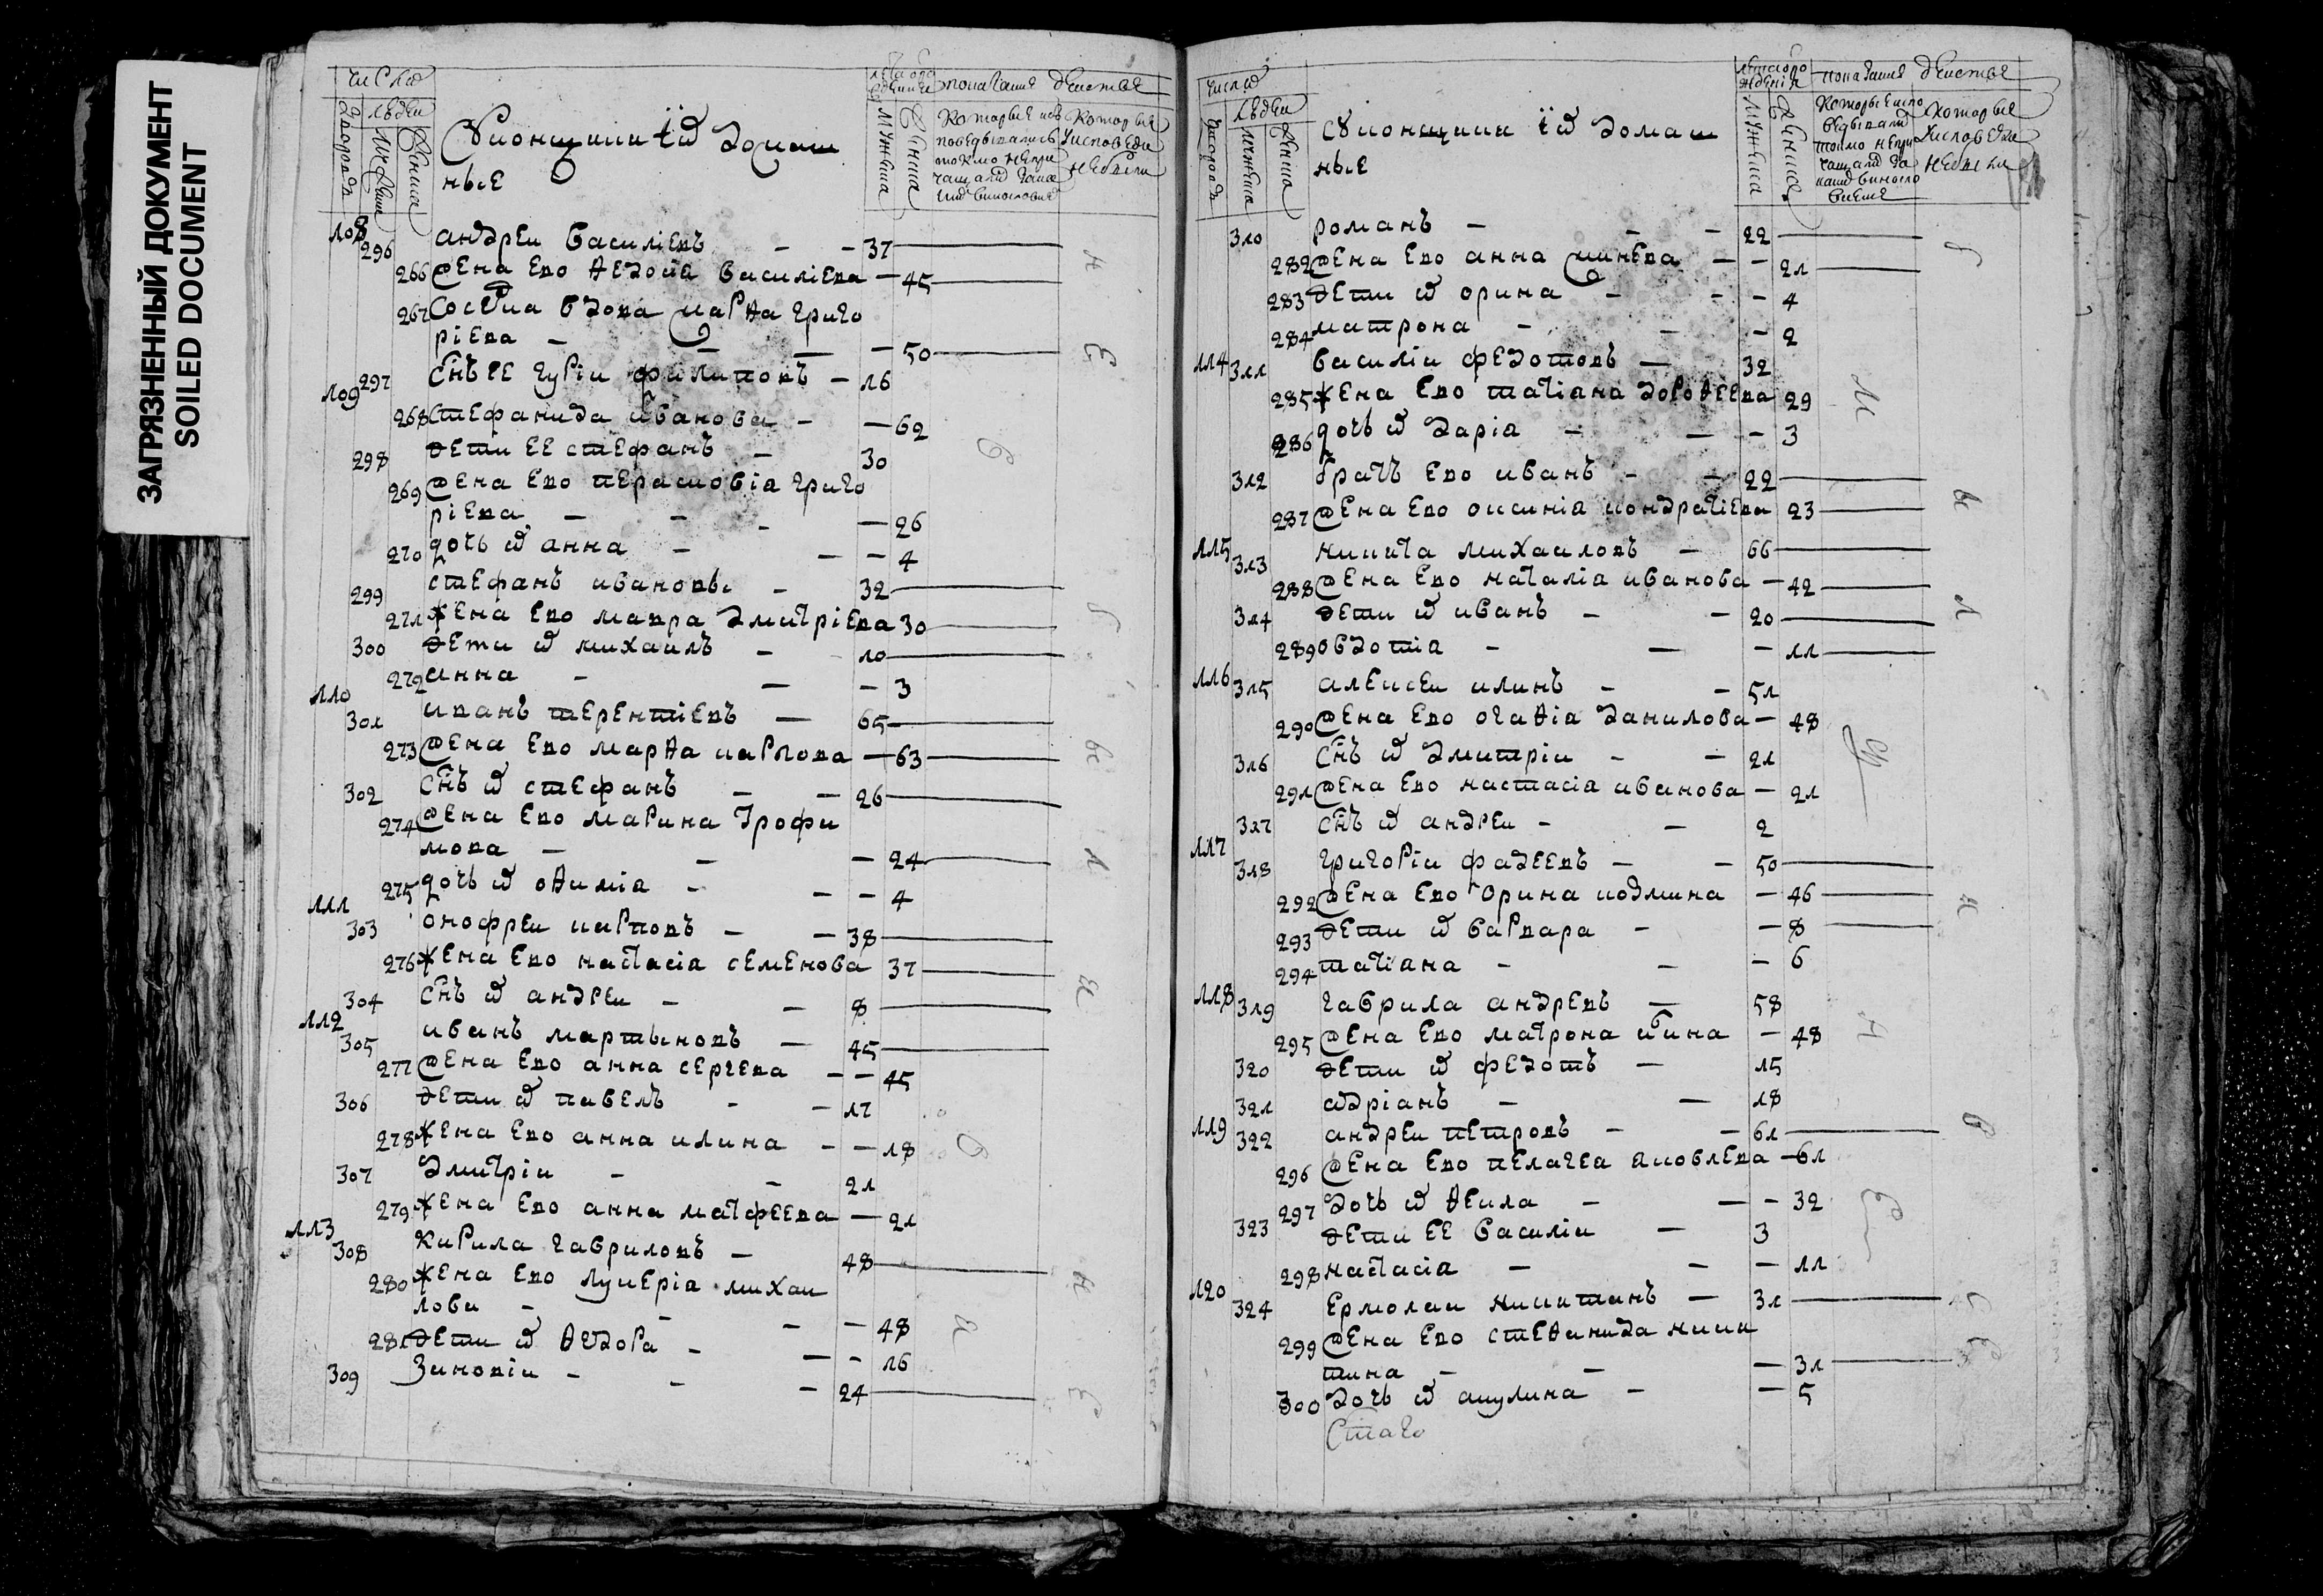 ЗАГРЯЗНЕННЫЙ ДОКУМЕНТ
SOILED DOCUMENT
числа
людеи
дворовъ
мужеска
женска
ные
показание действа
мужеска
женска
которые
которые
108 296 андреи василиевъ - - 37
266 жена ево федосиа василиева - 45
267 вдова марѳа григо
риева - - - 50
297 снъ ее гуріи филиповъ - 16
109
268 стефанида иванова - - 62
298 дети ее стефанъ - 30
269 жена ево перасковіа григо
ріева - - - 26
270 дочь ѿ анна - - - 4
299 стефанъ ивановъ - 32
271 жена ево мавра дмитріева 30
300 дети ѿ михаилъ - 10
272 анна - - - 3
110
301 иванъ терентіевъ - 65
273 жена ево марѳа карпова - 63
302 снъ ѿ стефанъ - - 26
274 жена ево марина трофи
мова - - - 24
275 дочь ѿ оѳиміа - - - 4
111
303 онофреи карповъ - - 38
276 жена ево настасіа семенова 37
304 снъ ѿ андреи - - 8
112
305 иванъ мартыновъ - 45
277 жена ево анна сергева - - 45
306 дети ѿ павелъ - - 17
278 жена ево анна илина - - 18
307 дмитріи - - 21
279 жена ево анна матфеева - 21
113
308 кирила гавриловъ - 48
280 жена ево лукеріа михаи
лова - - - - 48
281 дети ѿ ѳедора - - - 16
309 зиновіи - - - 24
числа
людеи
мужеска
женска
ные
показание действа
мужеска
женска
которые
310 романъ - - - 22
282 жена ево анна минева - - 21
283 дети ѿ орина - - - 4
284 матрона - - - 2
114 311 василіи федотовъ - 32
285 жена ево татіана дороѳеева 29
286 дочь ѿ даріа - - - 3
312 братъ ево иванъ - - 22
287 жена ево оксиніа кондратіева 23
115 313 никита михаиловъ - 66
288 жена ево наталіа иванова - 42
314 дети ѿ иванъ - - 20
289 овдотіа - - - 11
116 315 алексеи илинъ - - 51
290 жена ево огаѳіа данилова - 48
316 снъ ѿ дмитріи - - 21
291 жена ево настасіа иванова - 21
317 снъ ѿ андреи - - 2
117
318 григоріи фадеевъ - - 50
292 жена ево орина кодмина - 46
293 дети ѿ варвара - - 8
294 татіана - - - 6
118 319 гаврила андревъ - 58
295 жена ево матрона - 48
320 дети ѿ федотъ - 15
321 адріанъ - - 18
119 322 андреи петровъ - - 61
296 жена ево пелагеа яковлева - 61
297 дочь ѿ ѳекла - - - 32
323 дети ее василіи - 3
298 настасіа - - - 11
120 324 ермолаи никитинъ - 31
299 жена ево стеѳанида ники
тина - - - 31
300 дочь ѿ акулина - - 5